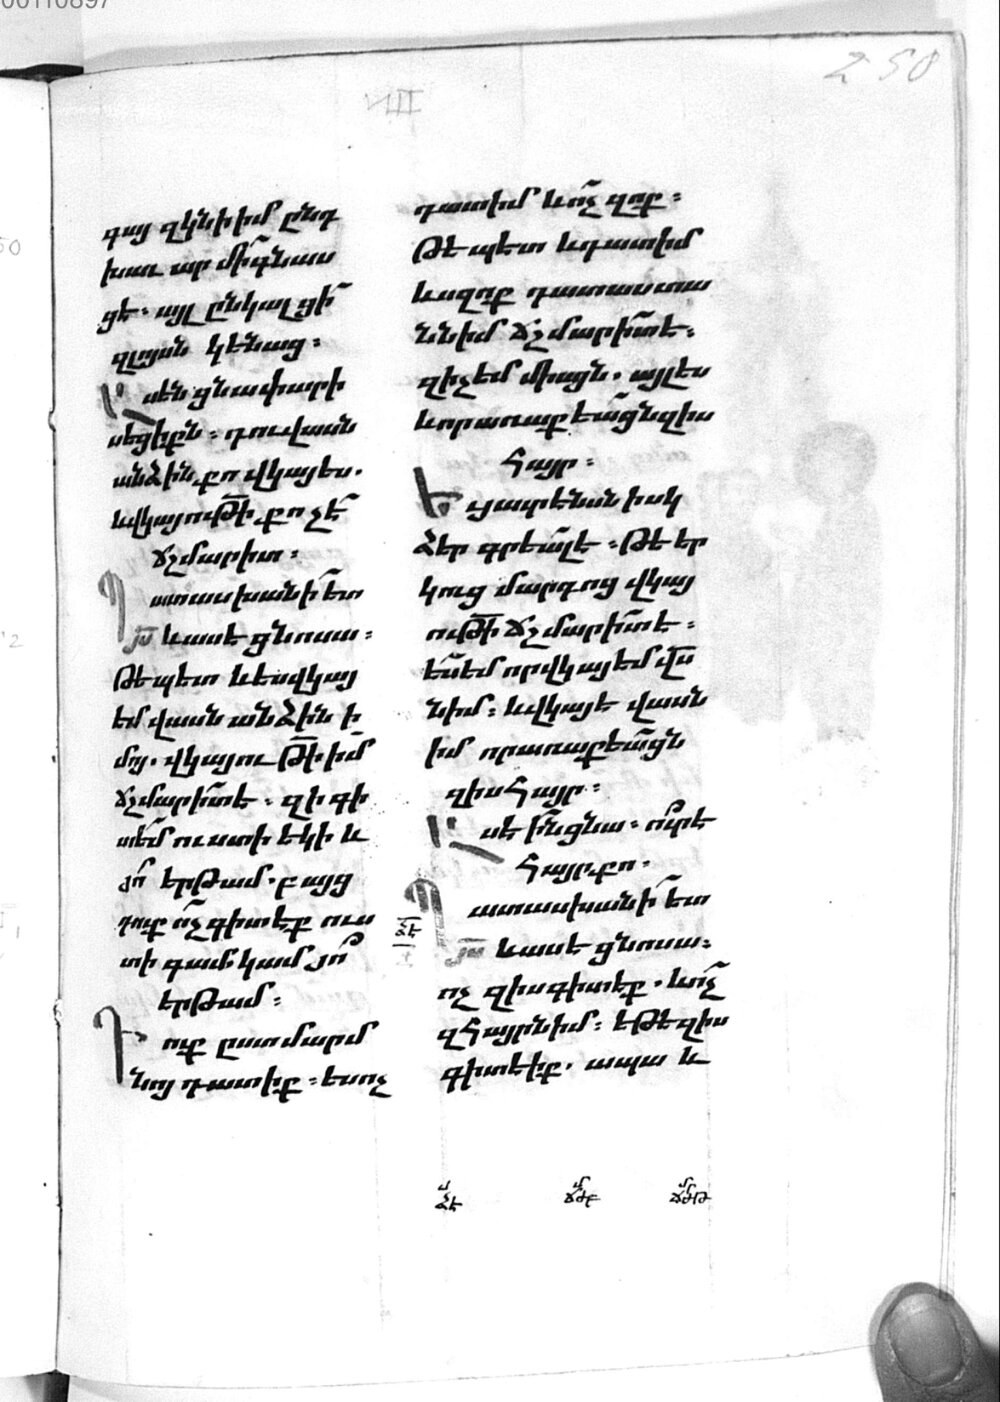 00110897
250
VIII
գայ զկնի իմ ընդ
խաւար մի՛ գնաս
ցէ. այլ ընկալցի՛
զլոյսն կենաց։
Ասեն ցնա փարի
սեցիքն. դու վասն
անձին քո վկայես.
և վկայութի քո չէ՛
ճշմարիտ։
Պատասխանի ետ
յս և ասէ ցնոսա։
Թէպետ և ես վկայ
եմ վասն անձին ի
մոյ. վկայութի իմ
ճշմարիտ է. զի գի
տեմ ուստի եկի և
յո՛ երթամ. բայց
դուք ոչ գիտէք ուս
տի գամ կամ յո՛
երթամ։
Դուք ըստ մարմ
նոյ դատիք. ես ոչ
դատիմ և ոչ զոք։
Թէպետ և դատիմ
ևս զոք դատաստա
ննիմ ճշմարիտ է.
զի չեմ միայն. այլ ես
և որ առաքեաց զիս
Հայր։
Եւ յաւրէնսն իսկ
ձեր գրեալ է. թէ եր
կուց մարդոց վկայ
ութի ճշմարիտ է.
ես եմ որ վկայեմ վս
նիմ. և վկայէ վասն
իմ որ առաքեացն
զիս Հայր։
Ասէին ցնա. ո՛ւր է
Հայր քո.
Պատասխանի ետ
յս և ասէ ցնոսա.
ոչ զիս գիտէք. և ոչ
զՀայրն իմ. եթէ զիս
գիտէիք. ապա և